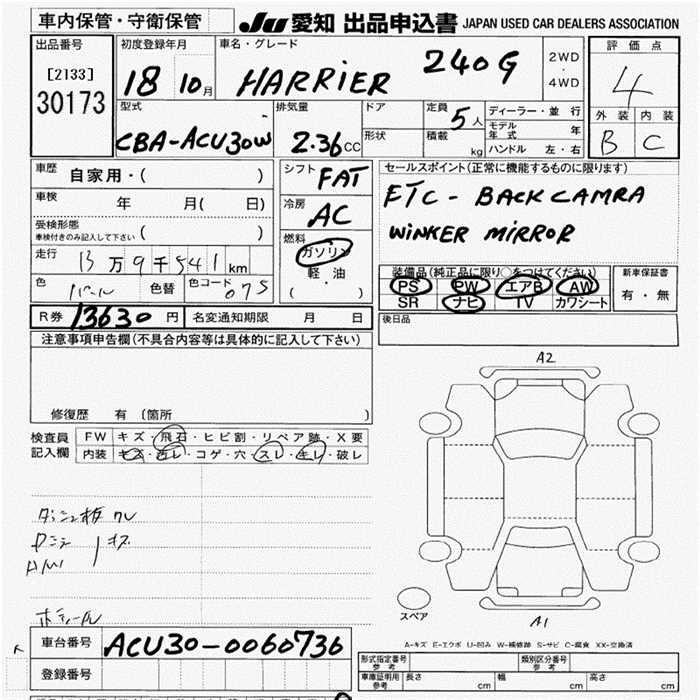 車内保管・守衛保管 JU 愛知 出品申込書 JAPAN USED CAR DEALERS ASSOCIATION
出品番号 初度登録年月 車名・グレード 評価点
[2133]
30173
18 10月 HARRIER 240G 2WD・4WD 4
型式 排気量 ドア 定員 5人 ディーラー・並行 外装 内装
モデル年式 年
CBA-ACU30W 2.36CC 形状 積載 kg ハンドル 左・右 B C
車歴 自家用・( ) シフト FAT セールスポイント(正常に機能するものに限ります)
車検 年 月( 日) 冷房 AC ETC - BACK CAMRA
受検形態
車検付きのみ記入して下さい ( ) 燃料 ガソリン WINKER MIRROR
走行 13万9千541km 軽・油
色 パール 色替 色コード 075 ( ・ )
装備品(純正品に限り○をつけてください) 新車保証書
PS PW エアB AW 有・無
SR ナビ TV カワシート
R券 13630円 名変通知期限 月 日 後日品
注意事項申告欄(不具合内容等は具体的に記入して下さい)
修復歴 有 (箇所 )
検査員記入欄 FW キズ・飛石・ヒビ割・リペア跡・X要
内装 キズ・汚レ・コゲ・穴・スレ・キレ・破レ
A2
スペア
A1
A-キズ E-エクボ U-凹み W-補修跡 S-サビ C-腐食 XX-交換済
車台番号 ACU30-0060736
型式指定番号 参考 類別区分番号 参考
登録番号
車庫証明用参考 長さ cm 幅 cm 高さ cm